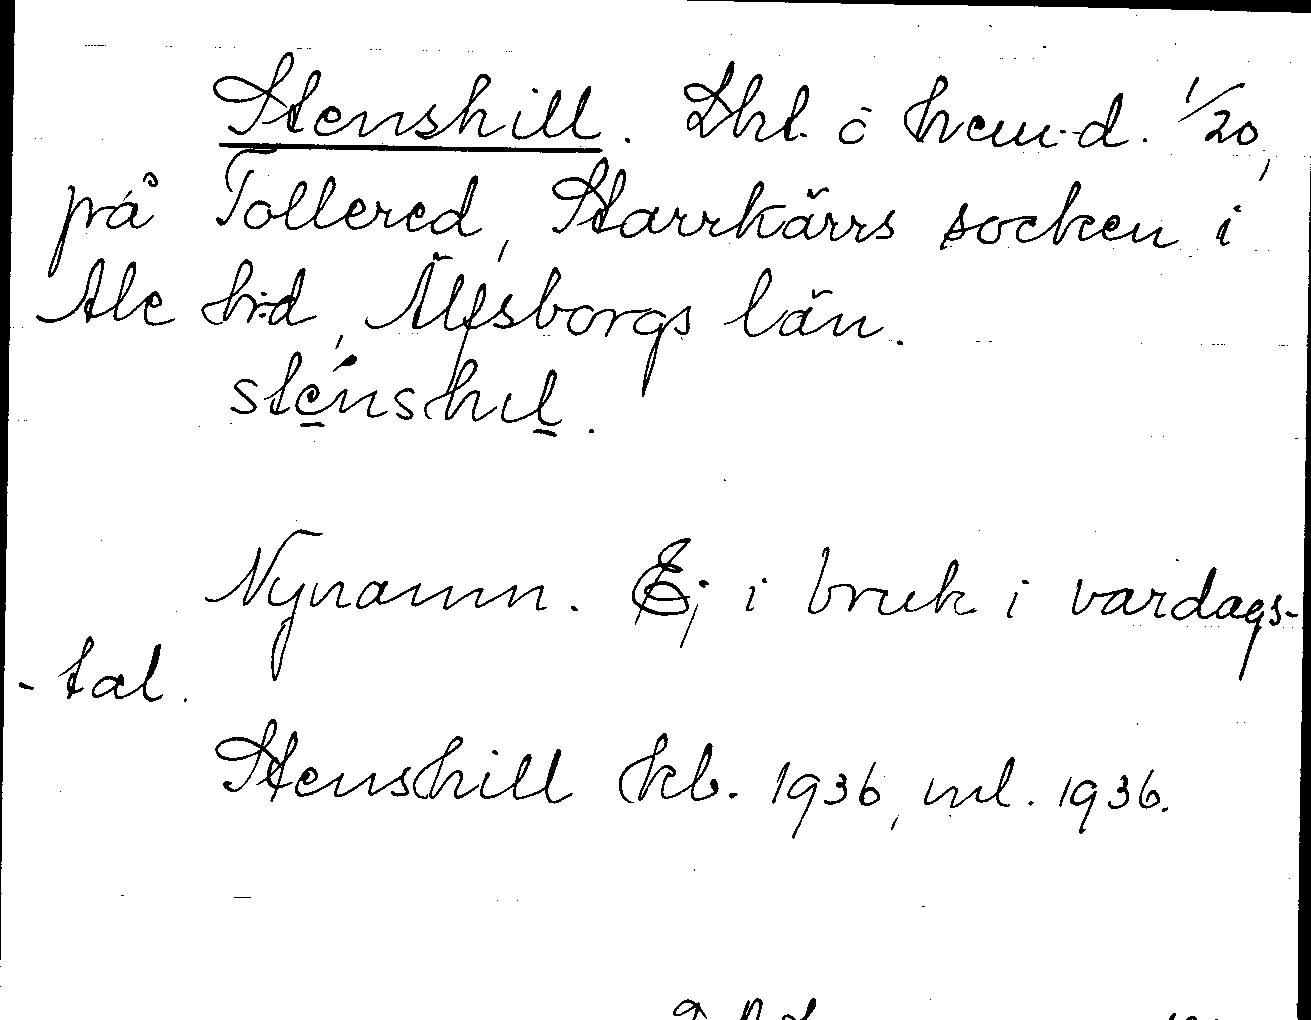 Stenshill. Lht. ö hem-d. 1/20,
på Tollered, Starrkärrs socken i
Ale h:d, Älfsborgs län.
sténshil.
Nynamn. Ej i bruk i vardags-
-tal.
Stenshill kb. 1936, ml. 1936.